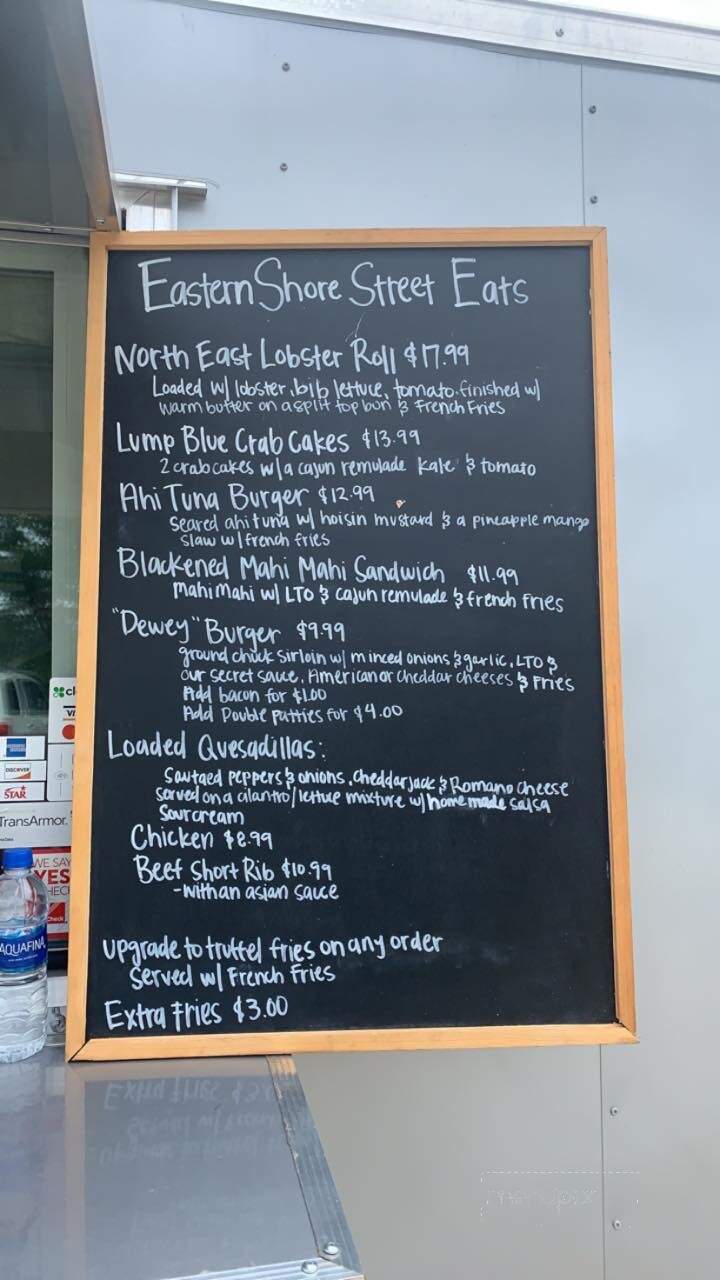 Eastern Shore Street Eats
North East Lobster Roll $17.99
Loaded w/ lobster, bib lettuce, tomato. finished w/
warm butter on a split top bun & French Fries
Lump Blue Crab Cakes $13.99
2 crab cakes w/ a cajun remulade kale & tomato
Ahi Tuna Burger $12.99
seared ahi tuna w/ hoisin mustard & a pineapple mango
slaw w/ french fries
Blackened Mahi Mahi Sandwich $11.99
mahi mahi w/ LTO & cajun remulade & french fries
"Dewey" Burger $9.99
ground chuck sirloin w/ minced onions & garlic, LTO &
our secret sauce, American or cheddar cheeses & Fries
Add bacon for $1.00
Add Double patties for $4.00
Loaded Quesadillas:
Sautaed peppers & onions, cheddar jack & Romano cheese
served on a cilantro/lettuce mixture w/ home made salsa
Sour cream
Chicken $8.99
Beef Short Rib $10.99
-with an asian sauce
upgrade to truffel fries on any order
Served w/ French Fries
Extra Fries $3.00
DISCOVER
STAR
TransArmor.
WE SAY
YES
AQUAFINA
menupix